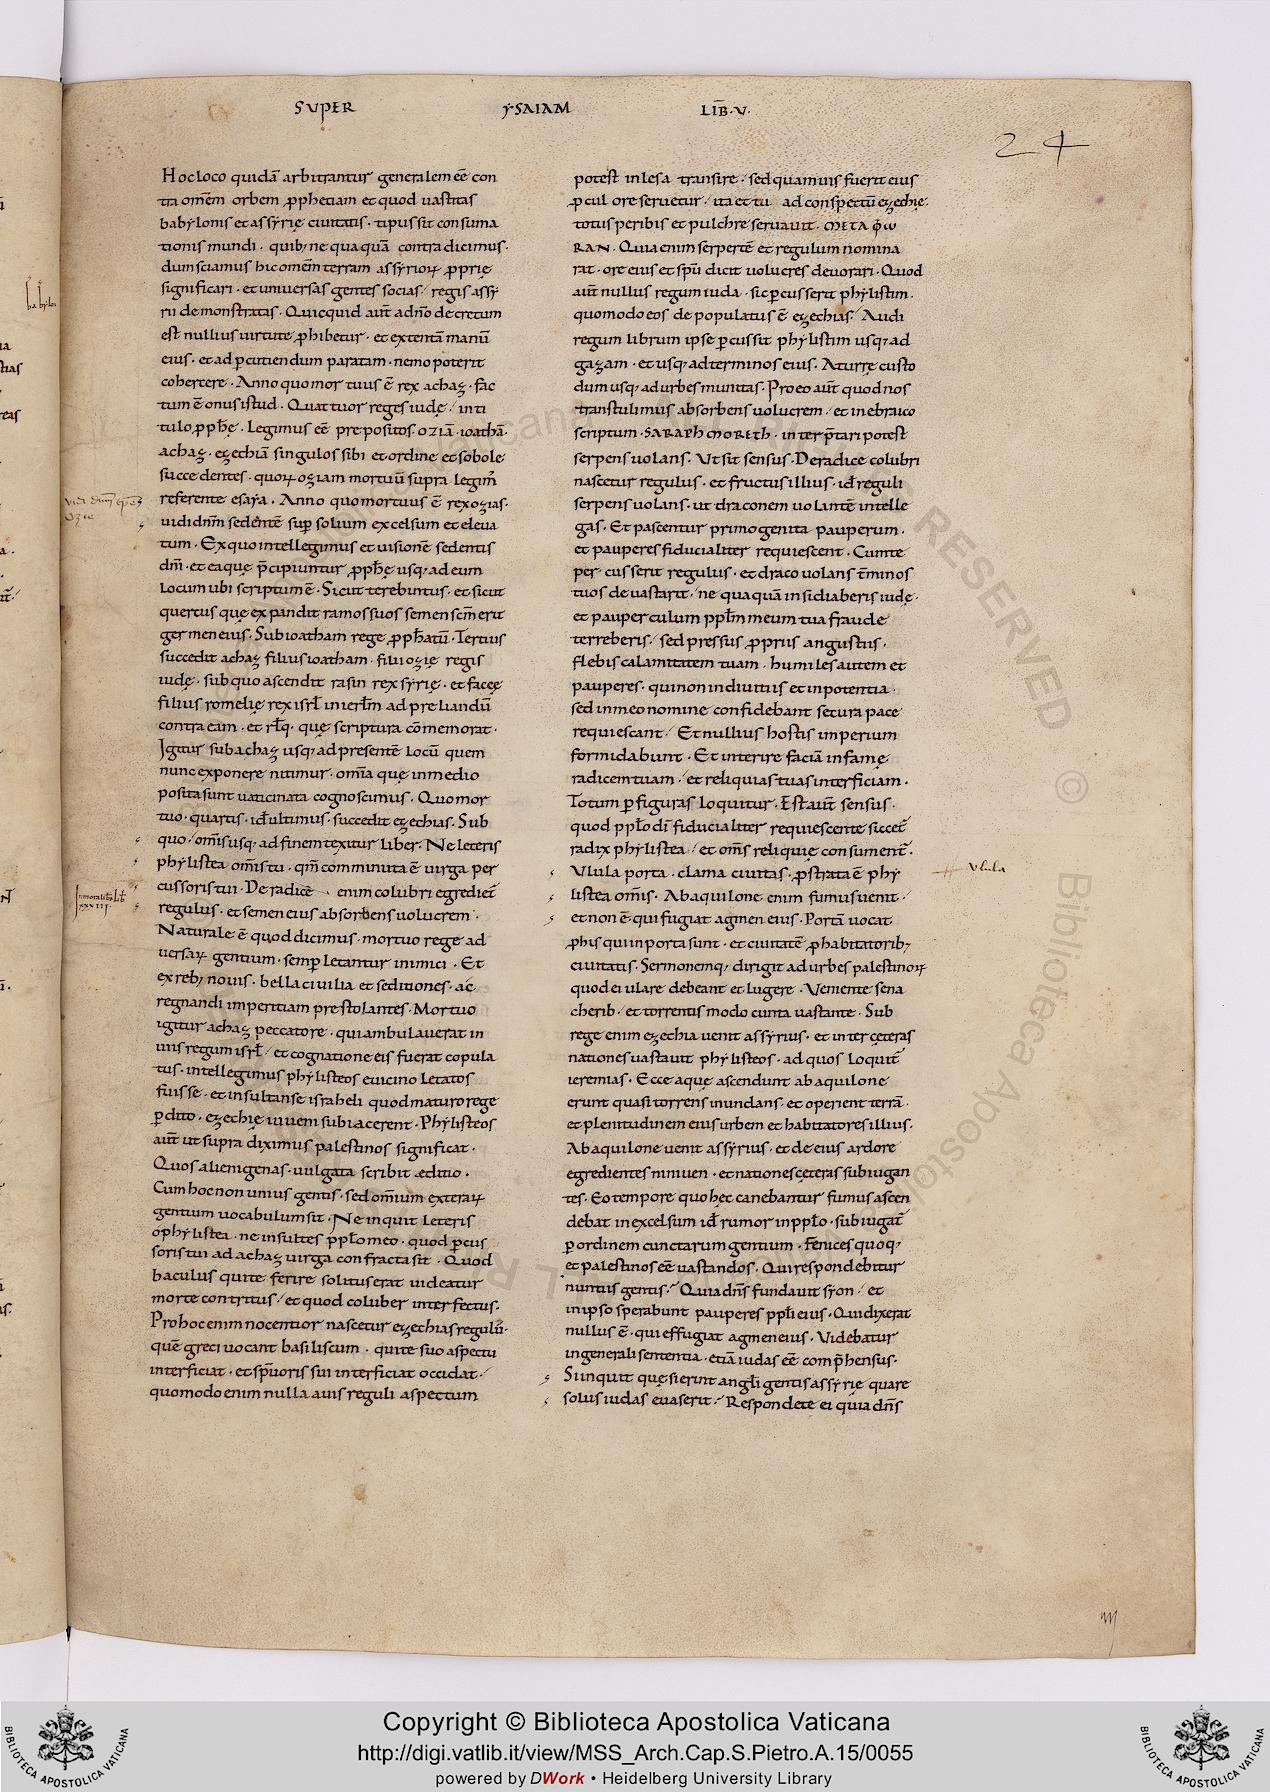 SUPER YSAIAM LIB̅·V·
24
Hoc loco quidā arbitrantur generalem eē con
tra omēm orbem ꝓphetiam et quod uastitas
babylonis et assyrię ciuitatis · tipus sit consuma
tionis mundi · quib; nequaquā contradicimus·
dum sciamus hic omēm terram assyrioꝝ ꝓprię
significari · et uniuersas gentes socias / regis assy
rii demonstratas · Quicquid aut̄ a dn̄o decretum
est nullius uirtute ꝓhibetur · et extentā manū
eius · et ad ꝑcutiendum paratam · nemo poterit
cohercere · Anno quo mortuus ē rex achaz · fac
tum ē onus istud · Quattuor reges iudę / in ti
tulo ꝓph̄ę · Legimus eē prepositos · oziā · ioathā·
achaz · ezechiā singulos sibi et ordine et sobole
succedentes · quoꝝ oziam mortuū supra legim̄
referente esaya · Anno quo mortuus ē rex ozias·
uidi dn̄m sedentē suꝑ solium excelsum et eleua
tum · Ex quo intellegimus et uisionē sedentis
dn̄i · et ea quę p̄cipiuntur ꝓph̄ę usq; ad eum
Locum ubi scriptum ē · Sicut terebintus · et sicut
quercus quę expandit ramos suos semen sc̄m erit
germen eius · Sub ioatham rege ꝓph̄atū · Tertius
succedit achaz filius ioatham · filii ozię regis
iudę · sub quo ascendit rasin rex syrię · et faceę
filius romelię rex isrł in ierłm ad preliandū
contra eam · et rłq · quę scriptura cōmemorat·
Igitur sub achaz usq; ad presentē Locū quem
nunc exponere nitimur · omīa quę in medio
posita sunt uaticinata cognoscimus · Quo mor
tuo · quartus · id ē ultimus · succedit ezechias · Sub
quo / om̄is usq; ad finem texitur liber · Ne leteris
phylistea om̄is tu · qm̄ comminuta ē uirga per
cussoris tui · De radice enim colubri egrediet̄
regulus · et semen eius absorbens uolucrem ·
Naturale ē quod dicimus · mortuo rege ad
uersaꝝ gentium · semꝑ letantur inimici · Et
ex reb; nouis · bella ciuilia et seditiones · ac
regnandi imperitiam prestolantes · Mortuo
igitur achaz peccatore · qui ambulauerat in
uiis regum isrł / et cognatione eis fuerat copula
tus · intellegimus phylisteos e uicino letatos
fuisse · et insultanse israheli quod maturo rege
ꝑdito · ezechię iuueni subiacerent · Phylisteos
aut̄ ut supra diximus palestinos significat ·
Quos alienigenas · uulgata scribit ędítio ·
Cum hoc non unius gentis · sed om̄ium exteraꝝ
gentium uocabulum sit · Ne inquit leteris
o phylistea · ne insultes p̄pło meo · quod ꝑcus
soris tui ad achaz uirga confracta sit · Quod
baculus qui te ferire solitus erat uideatur
morte contritus / et quod coluber interfectus·
Pro hoc enim nocentior nascetur ezechias regulus·
quē greci uocant basiliscum · qui te suo aspectu
interficiat · et sp̄u oris sui interficiat occidat /
quomodo enim nulla auis reguli aspectum
potest inlesa transire / sed quamuis fuerit eius
ꝓcul ore seruetur / ita et tu ad conspectū ezechię·
totus peribis et pulchre seruauit · ΜΕΤΑΦω
RAN · Quia enim serpentē et regulum nomina
rat · ore eius et spū dicit uolucres deuorari · Quod
aut̄ nullus regum iuda · sic ꝑcusserit phylistim·
quomodo eos depopulatus ē ezechias / Audi
regum librum ipse ꝑcussit phylistim usq; ad
gazam · et usq; ad terminos eius · A turrę custo
dum usq; ad urbes munitas · Pro eo aut̄ quod nos
transtulimus absorbens uolucrem / et in ebraico
scriptum · SARAPH MORETH · interp̄tari potest
serpens uolans · Ut sit sensus · De radice colubri
nascetur regulus · et fructus illius · id ē reguli
serpens uolans · ut draconem uolantē intelle
gas · Et pascentur primogenita pauperum ·
et pauperes fiducialiter requiescent · Cum te
percusserit regulus · et draco uolans t̄minos
tuos deuastarit / nequaquā insidiaberis iudę·
et pauperculum ppłm meum tua fraude
terreberis / sed pressus ꝓpriis angustiis ·
flebis calamitatem tuam · humiles autem et
pauperes · qui non in diuitiis et in potentia ·
sed in meo nomine confidebant secura pace
requiescant / Et nullius hostis imperium
formidabunt · Et interire faciā in famę
radicem tuam / et reliquias tuas interficiam ·
Totum ꝑ figuras loquitur · Est aut̄ sensus ·
quod ppło dī fiducialiter requiescente siccet̄
radix phylistea / et om̄s reliquię consument̄·
Vlula porta · clama ciuitas · ꝓstrata ē phy
listea om̄is · Ab aquilone enim fumus uenit ·
et non ē qui fugiat agmen eius · Portā uocat
ꝓ his qui in porta sunt · et ciuitatē ꝓ habitatorib;
ciuitatis · Sermonemq; dirigit ad urbes palestinoꝝ
quod eiulare debeant et lugere · Veniente sena
cherib · et torrentis modo cuncta uastante · Sub
rege enim ezechia uenit assyrius · et inter cęteras
nationes uastauit phylisteos · ad quos loquit̄
ieremias · Ecce aquę ascendunt ab aquilone
erunt quasi torrens inundans · et operient terrā·
et plenitudinem eius urbem et habitatores illius·
Ab aquilone uenit assyrius · et de eius ardore
egredientes niniuen · et nationes cęteras subiugan
tes · Eo tempore quo hęc canebantur fumus ascen
debat in excelsum id ē rumor in ppło · subiugat̄
ꝑ ordinem cunctarum gentium · fenices quoq;
et palestinos eē uastandos · Qui respondebitur
nuntiis gentis / Quia dn̄s fundauit syon / et
in ipso sperabunt pauperes ppłi eius · Qui dixerat
nullus ē · qui effugiat agmen eius · Videbatur
in generali sententia · etiā iudas eē comp̄hensus·
Si inquit quęsierint angłi gentis assyrię quare
solus iudas euaserit / Respondete ei quia dn̄s
Vlula
Copyright © Biblioteca Apostolica Vaticana
http://digi.vatlib.it/view/MSS_Arch.Cap.S.Pietro.A.15/0055
powered by DWork • Heidelberg University Library
BIBLIOTECA APOSTOLICA VATICANA
BIBLIOTECA APOSTOLICA VATICANA